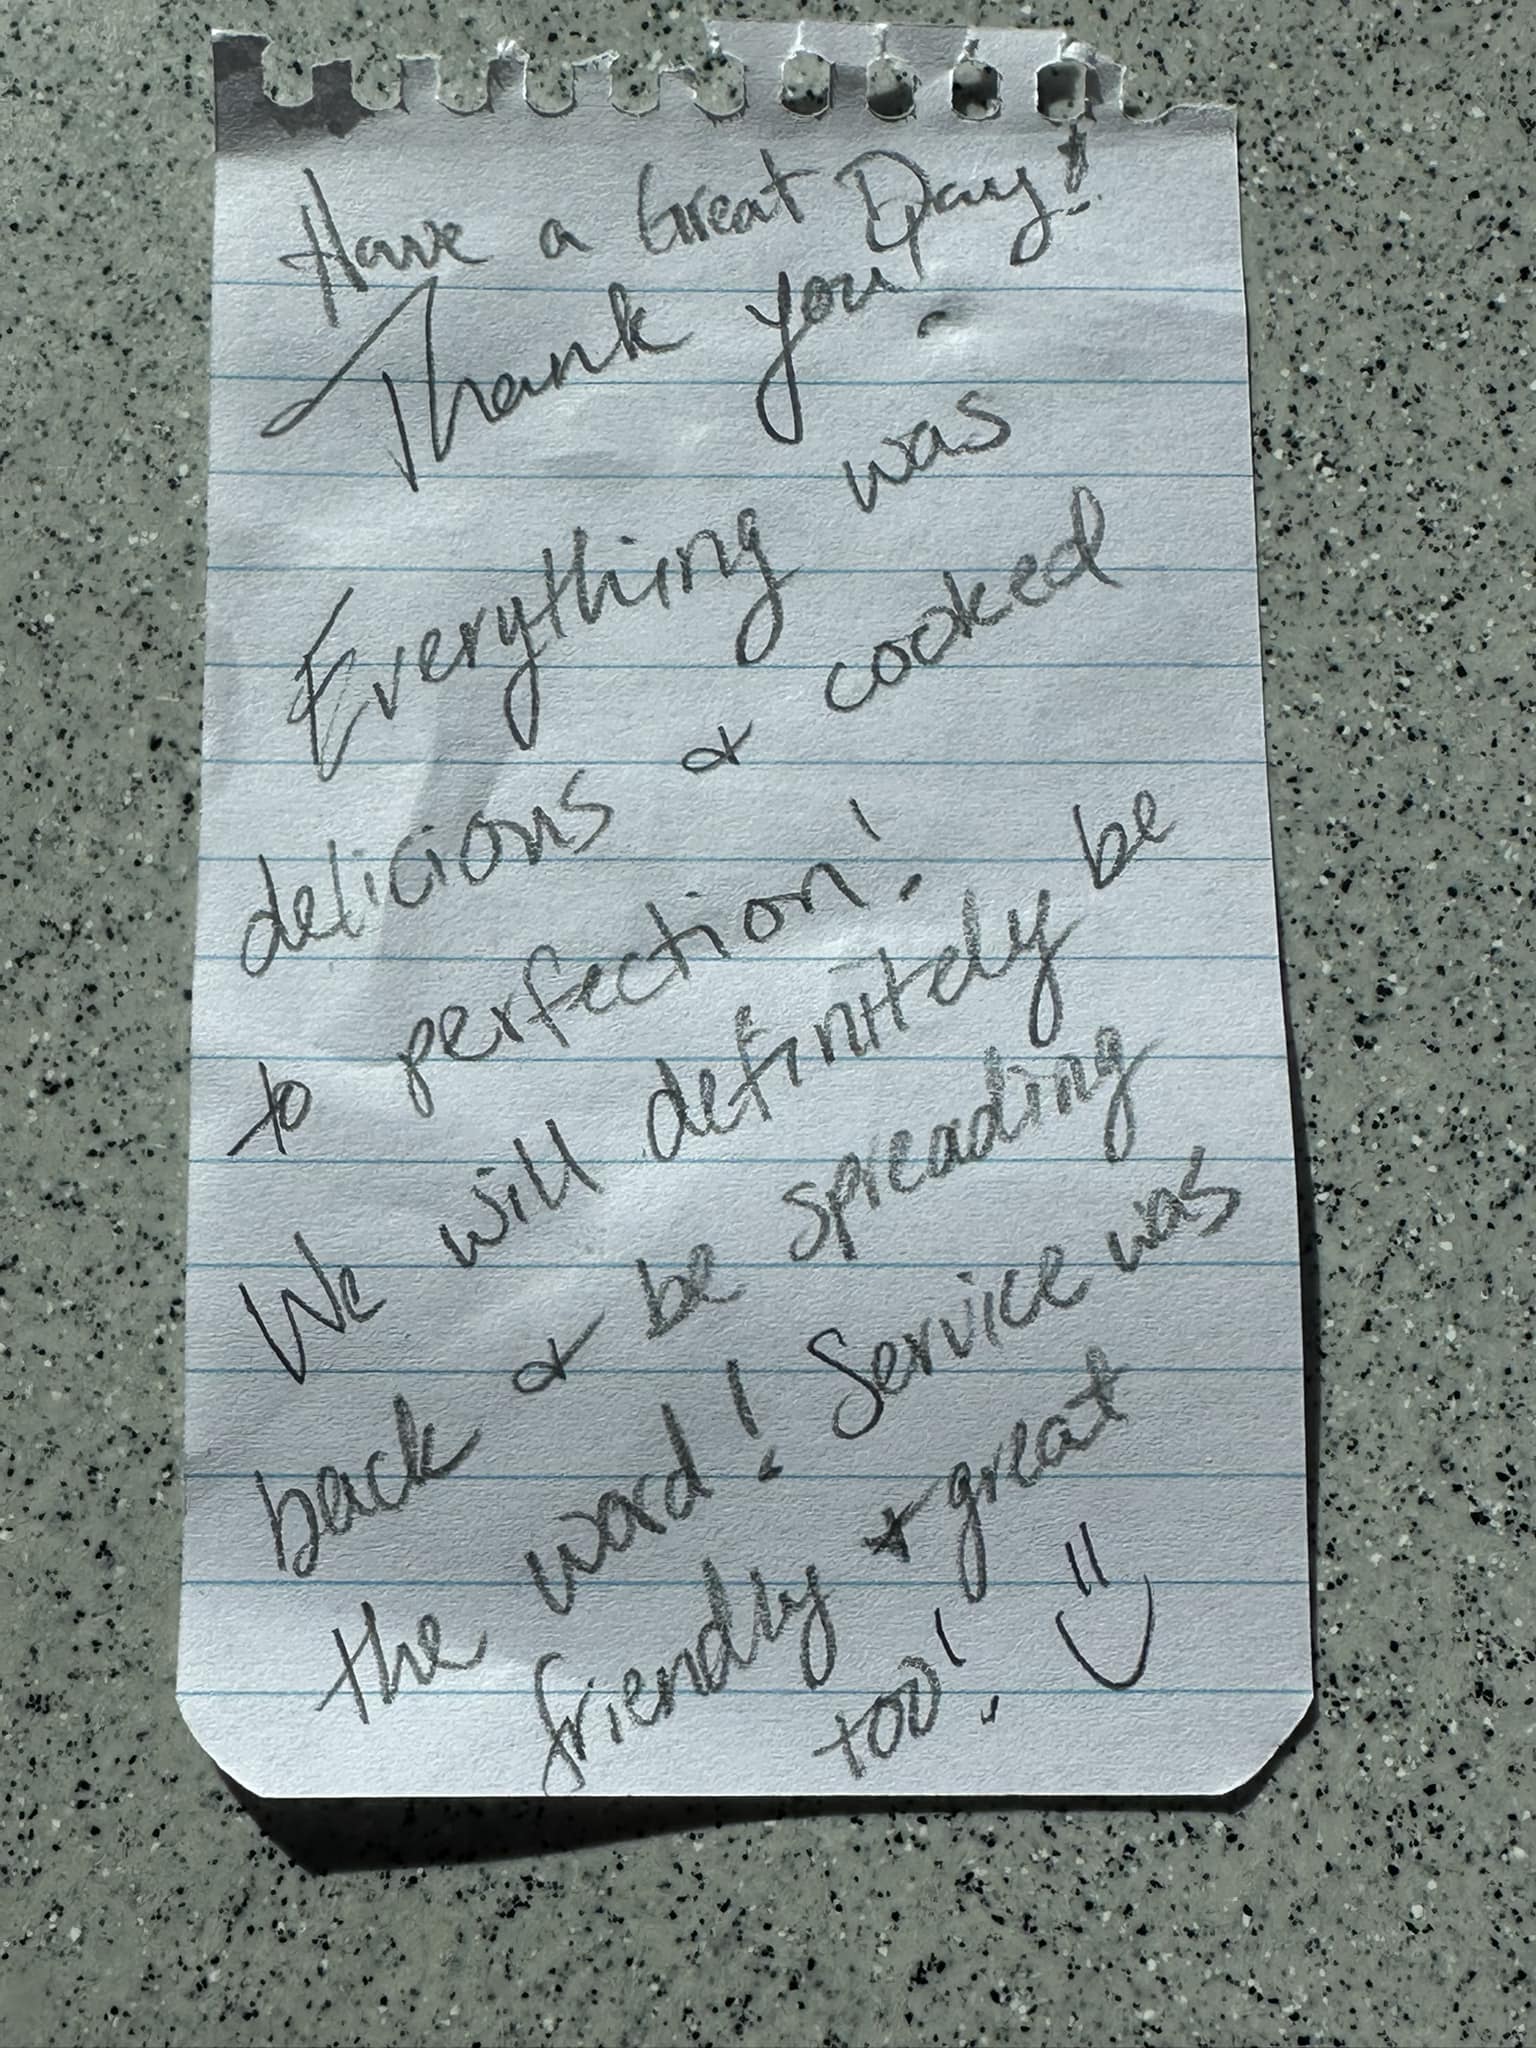 Have a Great Day!
Thank you!
Everything was
delicious & cooked
to perfection!
We will definitely be
back & be spreading
the word! Service was
friendly & great
too! =)